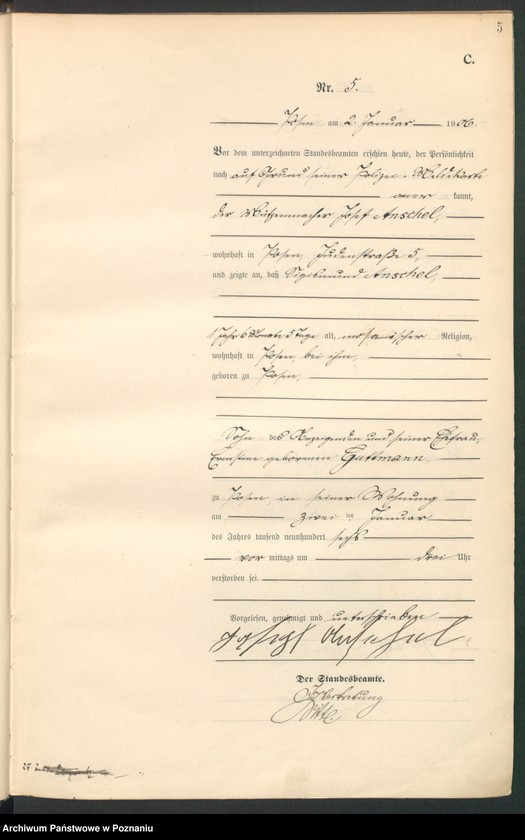 5
C.
Nr. 5.
Posen am 2. Januar 1906.
Vor dem unterzeichneten Standesbeamten erschien heute, der Persönlichkeit
nach auf Grund seiner Polizei-Meldekarte
aner kannt,
der Mützenmacher Josef Anschel,
wohnhaft in Posen, Judenstraße 5,
und zeigte an, daß Sigismund Anschel,
1 Jahr 6 Monate 5 Tage alt, mosaischer Religion,
wohnhaft in Posen, bei ihm,
geboren zu Posen,
Sohn des Anzeigenden und seiner Ehefrau,
Ernestine geborenen Guttmann,
zu Posen in seiner Wohnung
am zwei ten Januar
des Jahres tausend neunhundert sechs
vor mittags um drei Uhr
verstorben sei.
Vorgelesen, genehmigt und unterschrieben
Josef Anschel
Der Standesbeamte.
In Vertretung
Archiwum Państwowe w Poznaniu